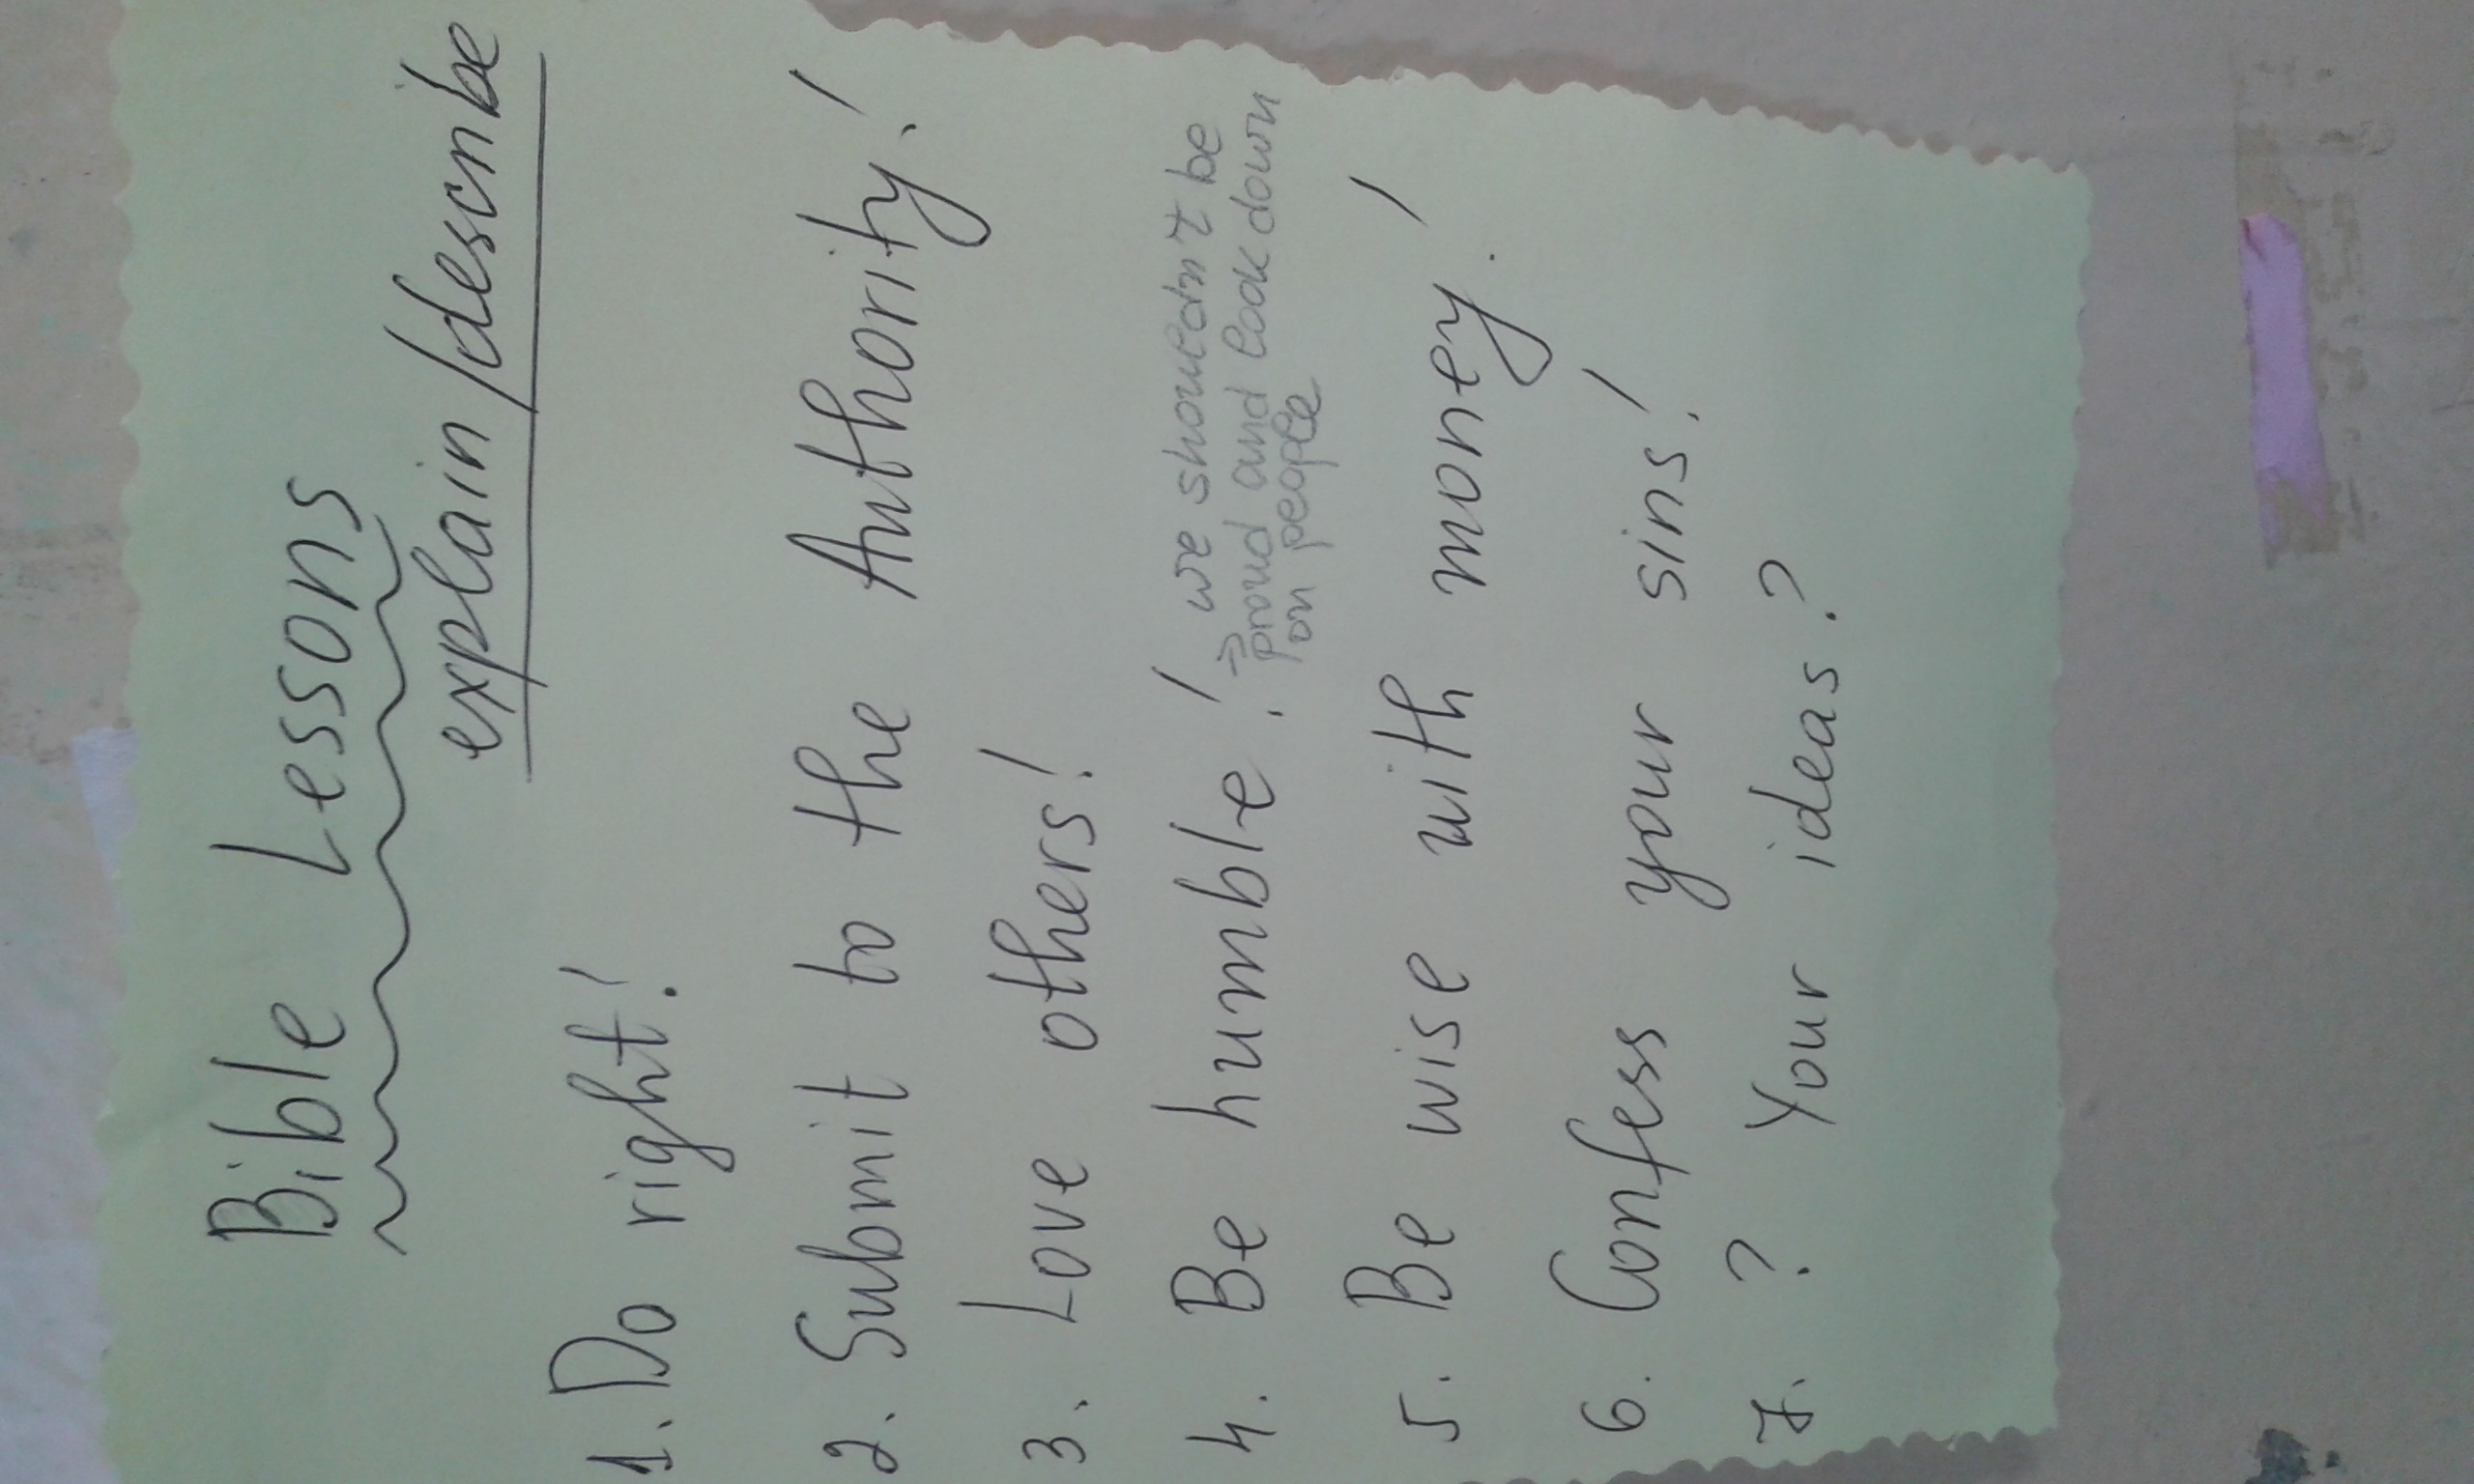 Bible Lessons
explain/describe
1. Do right!
2. Submit to the Authority!
3. Love others!
4. Be humble! => we shouldn't be
proud and look down
on people
5. Be wise with money!
6. Confess your sins!
7. ? Your ideas?